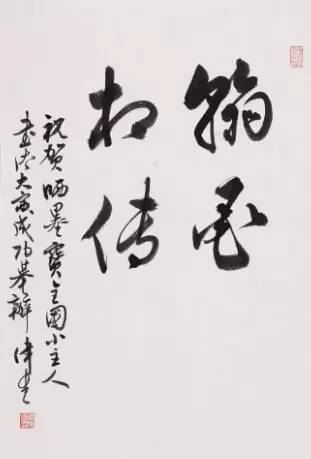 翰墨
相传
祝贺晒墨寶全國小主人
书法大赛成功举辦